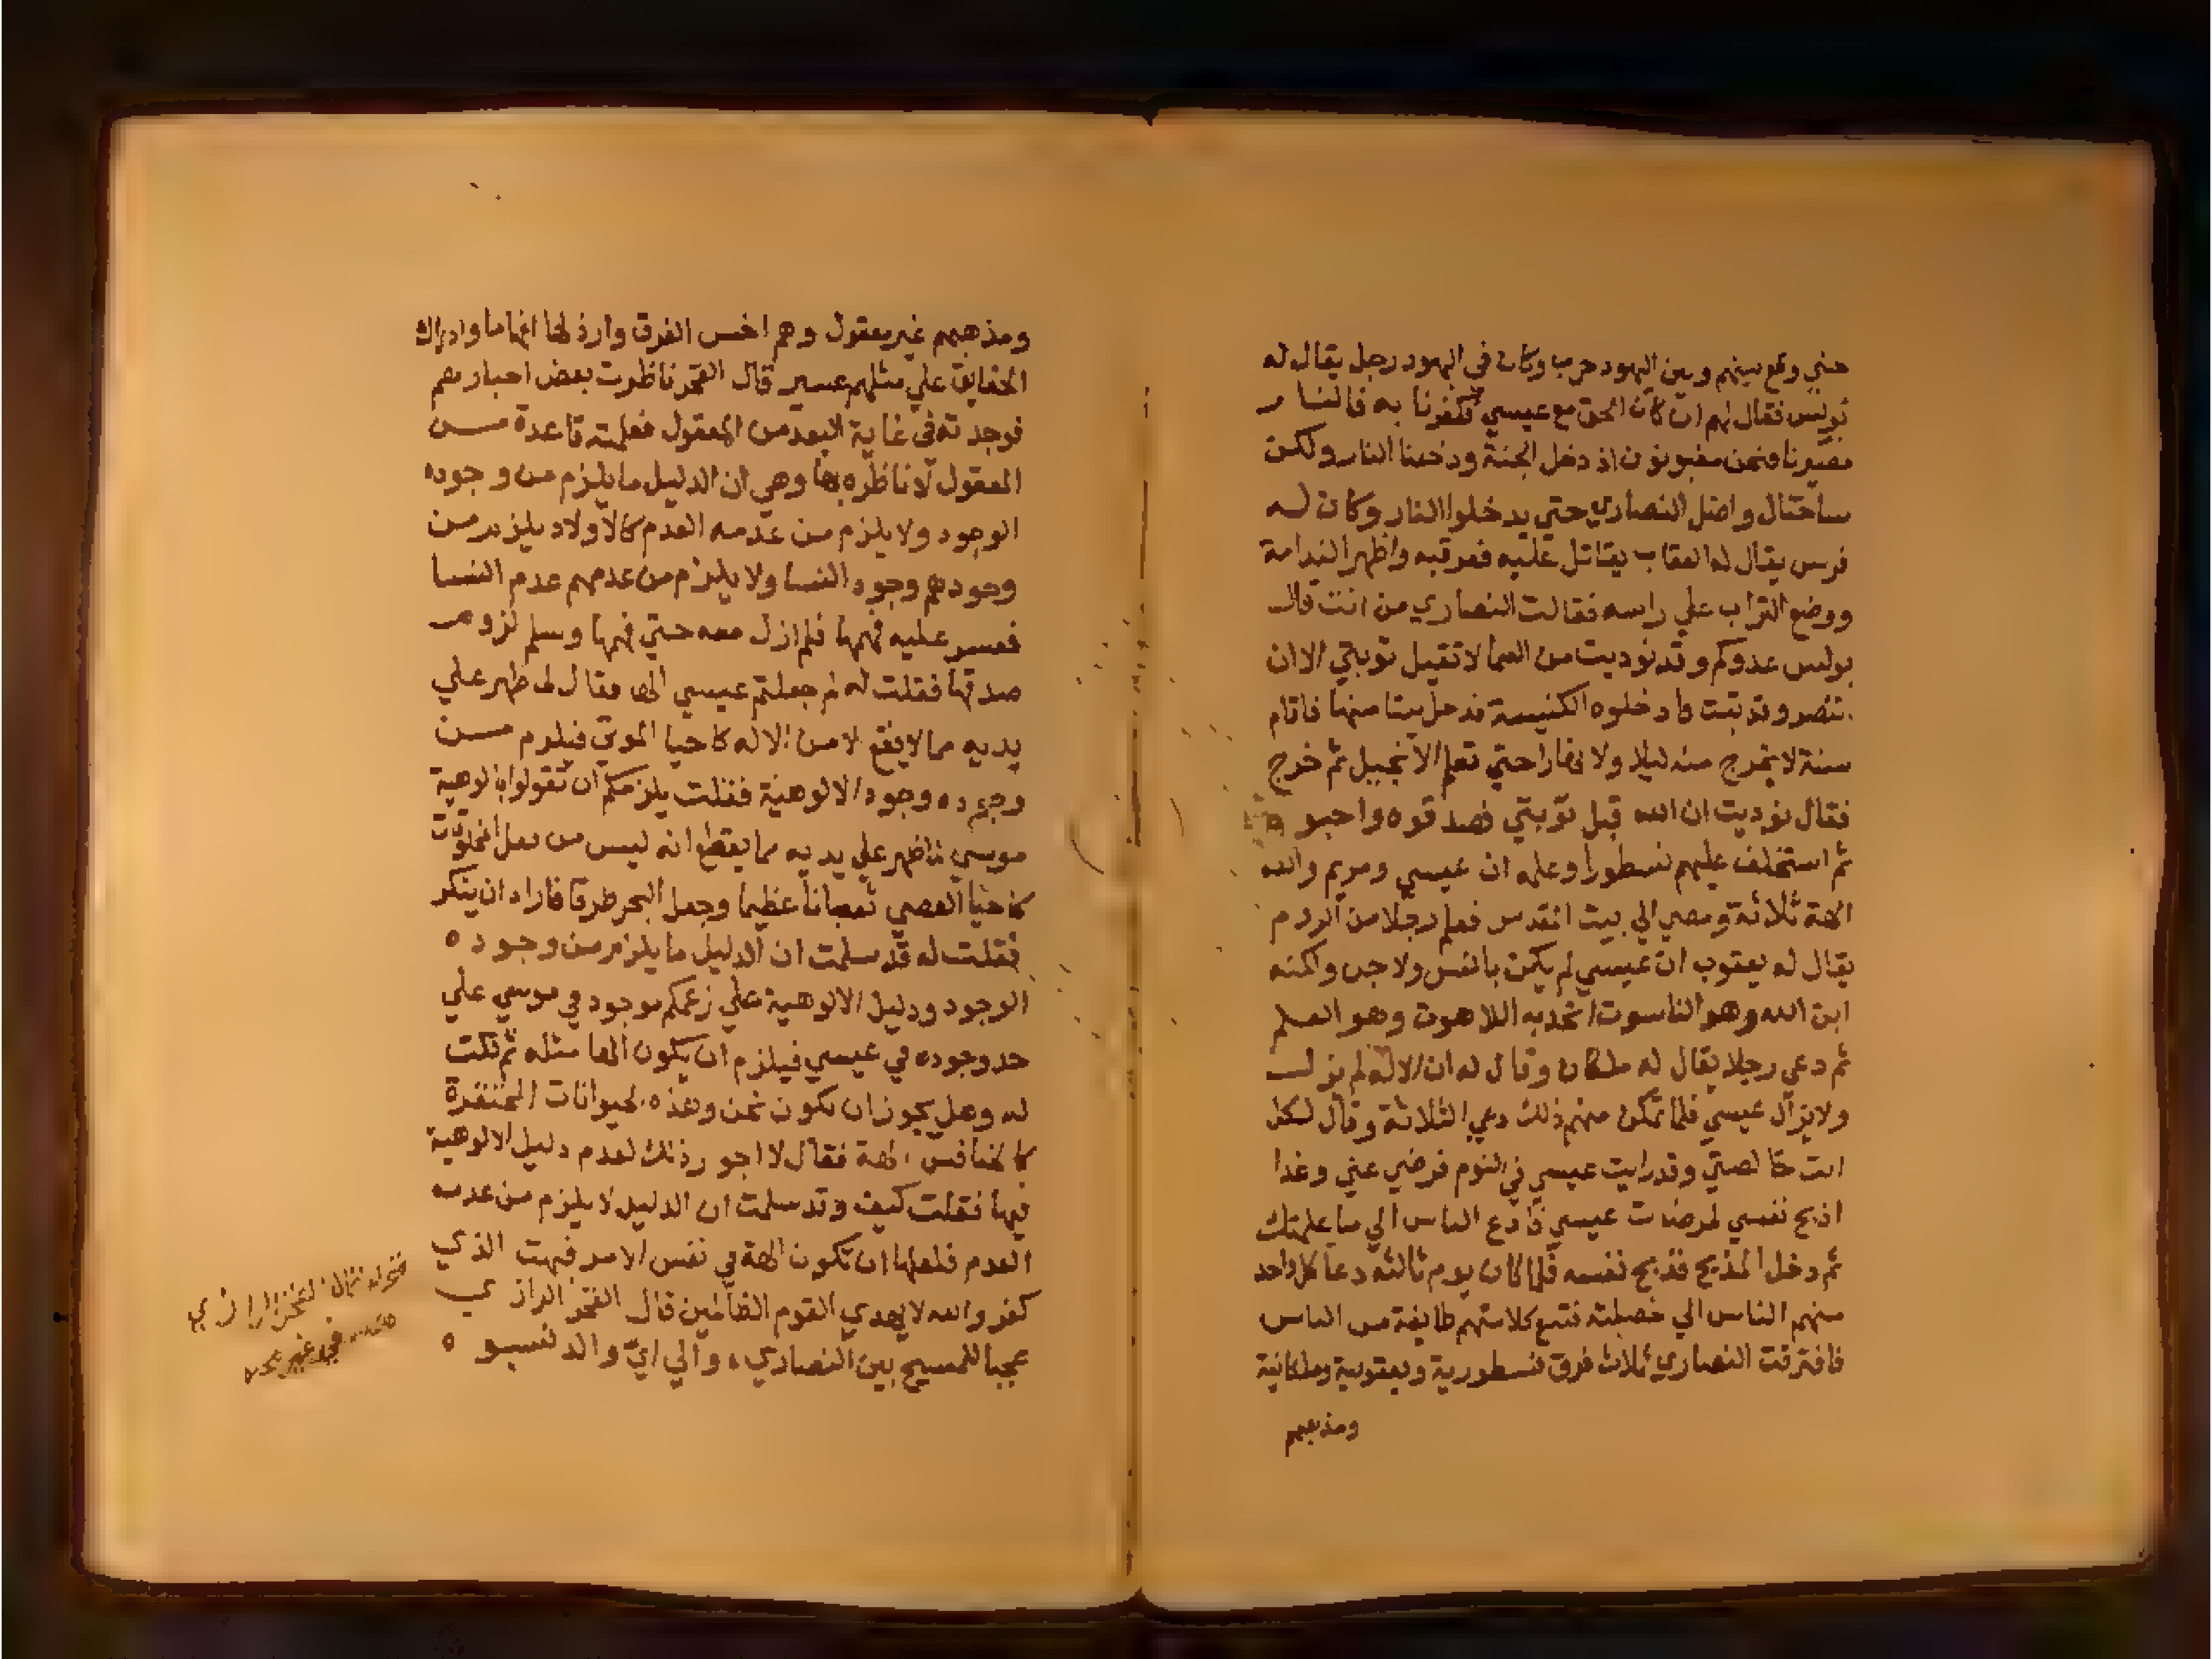 حتي وقع بينهم وبين اليهود حرب وكان في اليهود رجل يقال له
بولس فقال لهم ان كان الحق مع عيسي فكفرنا به فالنار
مصيرنا ونحن مغبونون اذ دخل الجنة ودخلنا النار ولكن
ساحتال واضل النصاري حتي يدخلوا النار وكان له
فرس يقال له العقاب يقاتل عليه فعرقبه واظهر الندامة
ووضع التراب علي راسه فقالت النصاري من انت قال
بولس عدوكم وقد نوديت من السما لا تقبل توبتي الا ان
تنصر وقد تبت فادخلوه الكنيسة فدخل بيتا منها فاقام
سنة لا يخرج منه ليلا ولا نهارا حتي تعلم الانجيل ثم خرج
فقال نوديت ان الله قبل توبتي فصدقوه واحبوه
ثم استخلف عليهم نسطورا وعلمه ان عيسي ومريم والله
الهة ثلاثة ومضي الي بيت المقدس فعلم رجلا من الروم
يقال له يعقوب ان عيسي لم يكن بانس ولا جن ولكنه
ابن الله وهو الناسوت اتحد به اللاهوت وهو العلم
ثم دعي رجلا يقال له ملكان وقال له ان الاله لم يزل
ولا يزال عيسي فلما تمكن منهم ذلك دعي الثلاثة وقال لكل
انت خالصتي وقد رايت عيسي في النوم فرضي عني وغدا
اذبح نفسي لمرضات عيسي فادع الناس الي ما علمتك
ثم دخل المذبح فذبح نفسه فلما كان يوم ثالثه دعا كل واحد
منهم الناس الي خصلته فتبع كلا منهم طايفة من الناس
فافترقت النصاري ثلاث فرق نسطورية ويعقوبية وملكانية
ومذهبهم
ومذهبهم غير معقول وهم اخس الفرق وارذلها افهاما وادراك
الحقايق علي مثلهم عسير قال الفخر ناظرت بعض احبارهم
فوجدته في غاية البعد من المعقول فعلمته قاعدة من
المعقول لاناظره بها وهي ان الدليل ما يلزم من وجوده
الوجود ولا يلزم من عدمه العدم كالاولاد يلزم من
وجودهم وجود النسا ولا يلزم من عدمهم عدم النسا
فعسر عليه فهمها فلم ازل معه حتي فهمها وسلم لزوم
صدقها فقلت له لم جعلتم عيسي الها فقال لما ظهر علي
يديه مما لا يقع الا من الاله كاحيا الموتي فيلزم من
وجوده وجود الالوهية فقلت يلزمكم ان تقولوا بالوهية
موسي لما ظهر علي يديه مما يقطع انه ليس من فعل المخلوقات
كاحيا العصي ثعبانا عظيما وجعل البحر طرقا فاراد ان ينكر
فقلت له قد سلمت ان الدليل ما يلزم من وجوده
الوجود ودليل الالوهية علي زعمكم موجود في موسي علي
حد وجوده في عيسي فيلزم ان يكون الها مثله ثم قلت
له وهل يجوز ان نكون نحن وهذه الحيوانات المحتقرة
كالخنافس الهة فقال لا اجوز ذلك لعدم دليل الالوهية
فيها فقلت كيف وقد سلمت ان الدليل لا يلزم من عدمه
العدم فلعلها ان تكون الهة في نفس الامر فبهت الذي
كفر والله لا يهدي القوم الظالمين قال الفخر الرازي
عجبا للمسيح بين النصاري، والي اي والد نسبوه
الفخر الرازي